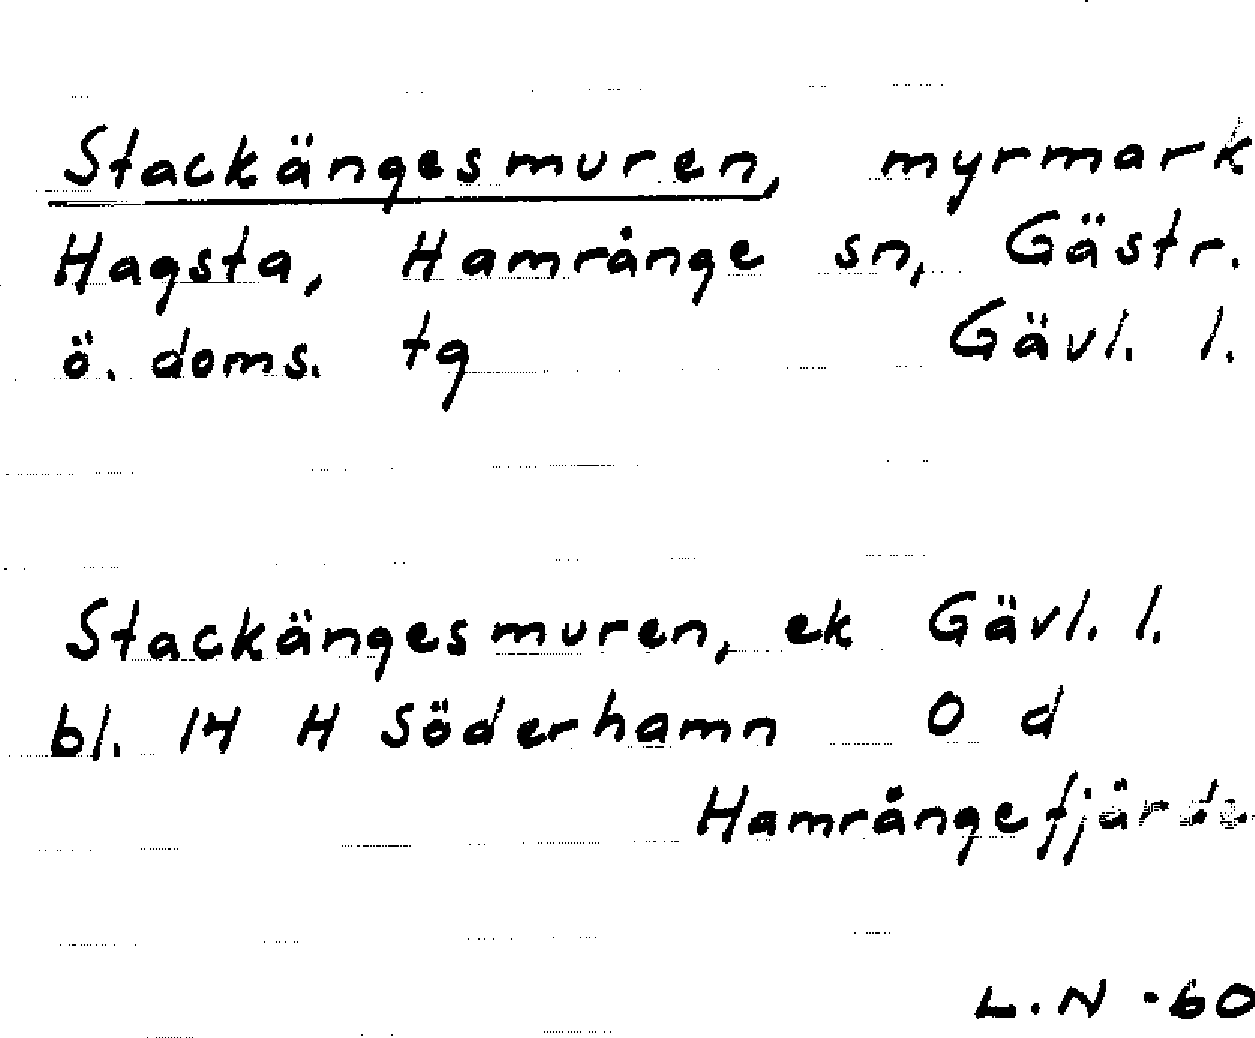 Stackängesmuren, myrmark
Hagsta, Hamrånge sn, Gästr.
ö. doms. tg Gävl. l.
Stackängesmuren, ek Gävl. l.
bl. 14 H Söderhamn 0 d
Hamrångefjärde
L.N -60